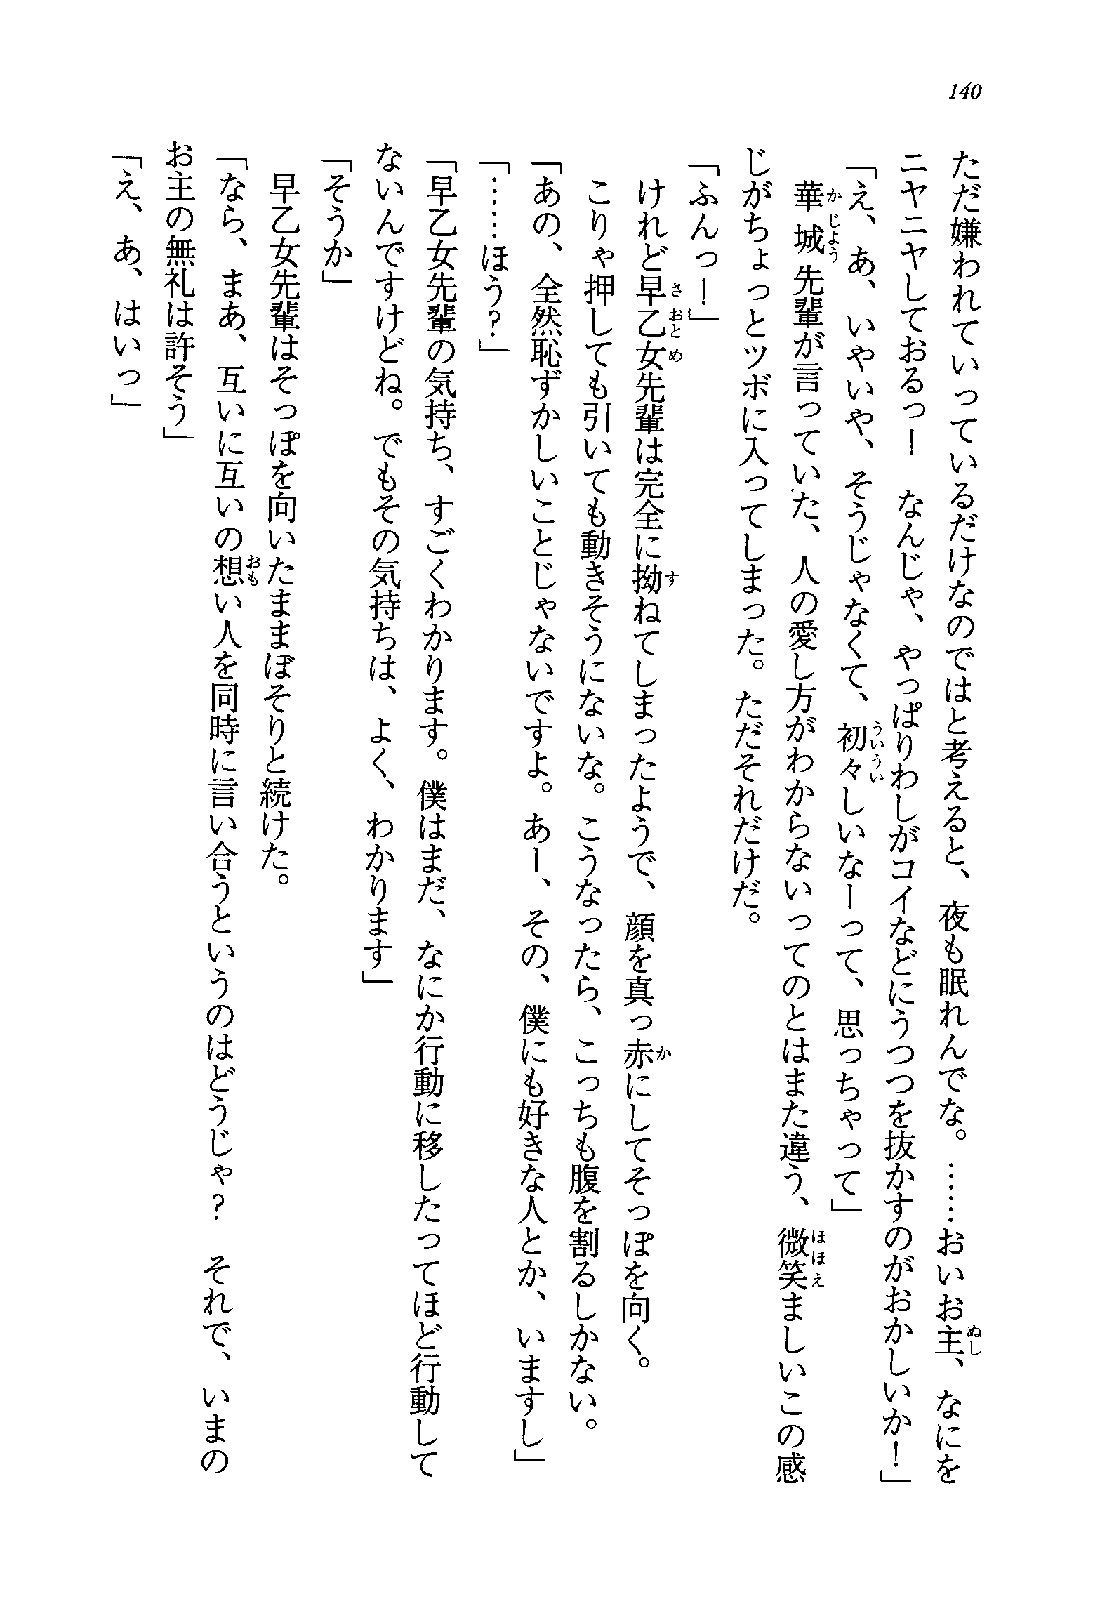 140
ただ嫌われていっているだけなのではと考えると、夜も眠れんでな。……おいお主、なにを
ニヤニヤしておるっ！　なんじゃ、やっぱりわしがコイなどにうつつを抜かすのがおかしいか！」
「え、あ、いやいや、そうじゃなくて、初々しいなーって、思っちゃって」
華城先輩が言っていた、人の愛し方がわからないってのとはまた違う、微笑ましいこの感
じがちょっとツボに入ってしまった。ただそれだけだ。
「ふんっ！」
けれど早乙女先輩は完全に拗ねてしまったようで、顔を真っ赤にしてそっぽを向く。
こりゃ押しても引いても動きそうにないな。こうなったら、こっちも腹を割るしかない。
「あの、全然恥ずかしいことじゃないですよ。あー、その、僕にも好きな人とか、いますし」
「……ほう？」
「早乙女先輩の気持ち、すごくわかります。僕はまだ、なにか行動に移したってほど行動して
ないんですけどね。でもその気持ちは、よく、わかります」
「そうか」
早乙女先輩はそっぽを向いたままぽそりと続けた。
「なら、まあ、互いに互いの想い人を同時に言い合うというのはどうじゃ？　それで、いまの
お主の無礼は許そう」
「え、あ、はいっ」